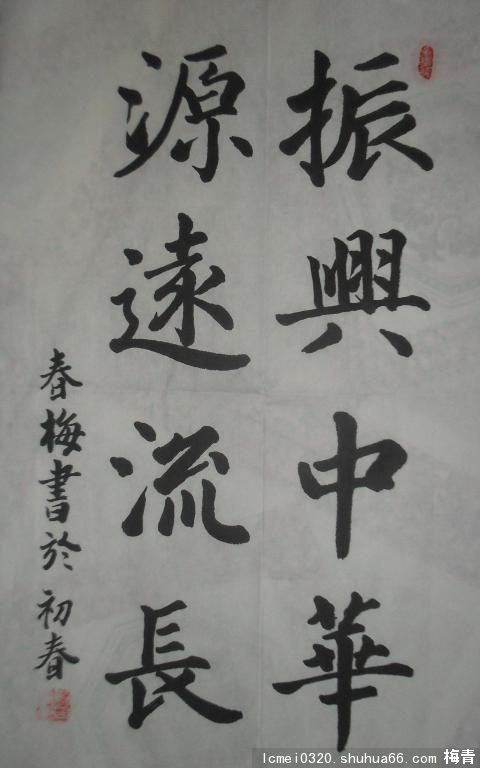 振興中華
源遠流長
春梅書於初春
lcmei0320.shuhua66.com 梅青